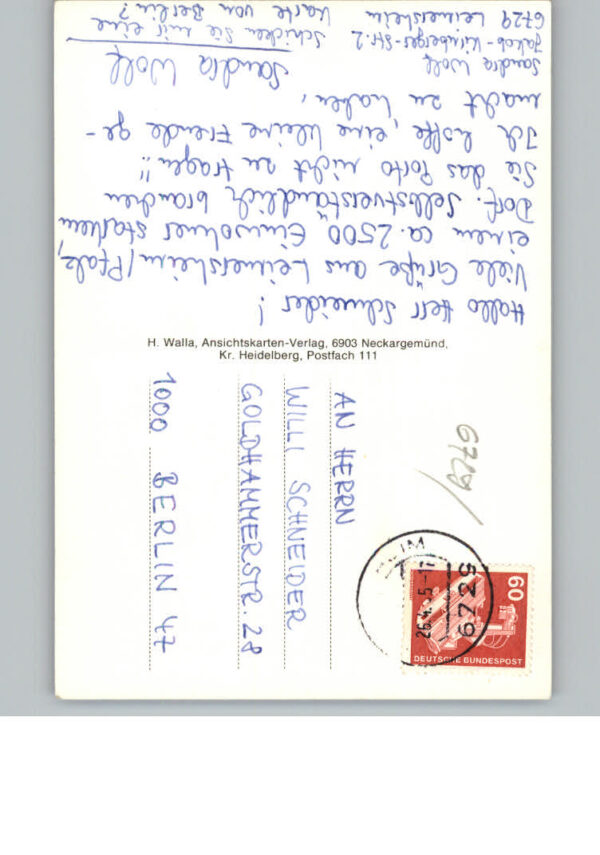 Hallo Herr Schneider!
Viele Grüße aus Leimersheim/Pfalz,
einem ca. 2500 Einwohner starken
Dorf. Selbstverständlich brauchen
Sie das Porto nicht zu tragen!!
Ich hoffe, eine kleine Freude ge-
macht zu haben,
Sandra Wolf
Sandra Wolf
Jakob-Kimberger-Str. 2
6729 Leimersheim
Schicken Sie mir eine
Karte von Berlin?
H. Walla, Ansichtskarten-Verlag, 6903 Neckargemünd,
Kr. Heidelberg, Postfach 111
AN HERRN
WILLI SCHNEIDER
GOLDHAMMERSTR. 28
1000 BERLIN 47
6729/
60
DEUTSCHE BUNDESPOST
6725